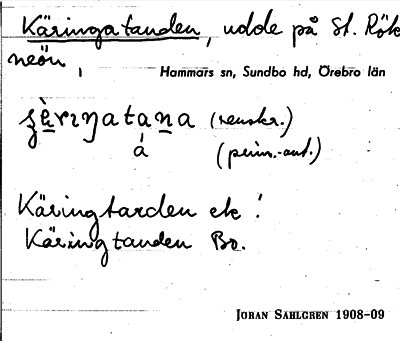 Käringatanden, udde på St. Rök
neön,
Hammars sn, Sundbo hd, Örebro län
ʂèrıŋatana (renskr.)
á (prim.-ant.)
Käringtanden ek!
Käringtanden Bo.
JÖRAN SAHLGREN 1908-09